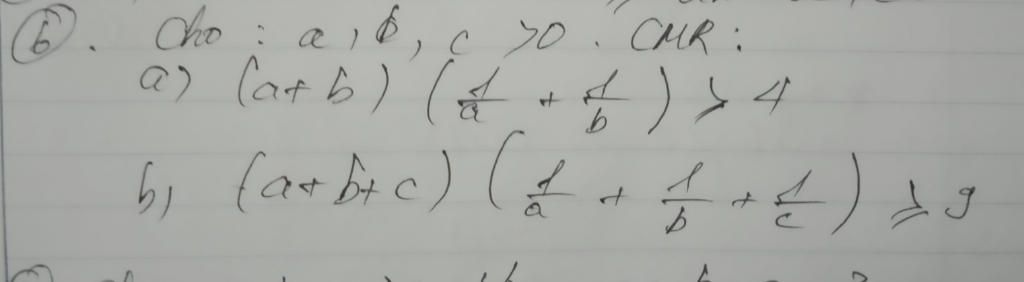 6. Cho : a, b, c > 0. CMR:
a) (a+b) (1/a + 1/b) ≥ 4
b) (a+b+c) (1/a + 1/b + 1/c) ≥ 9